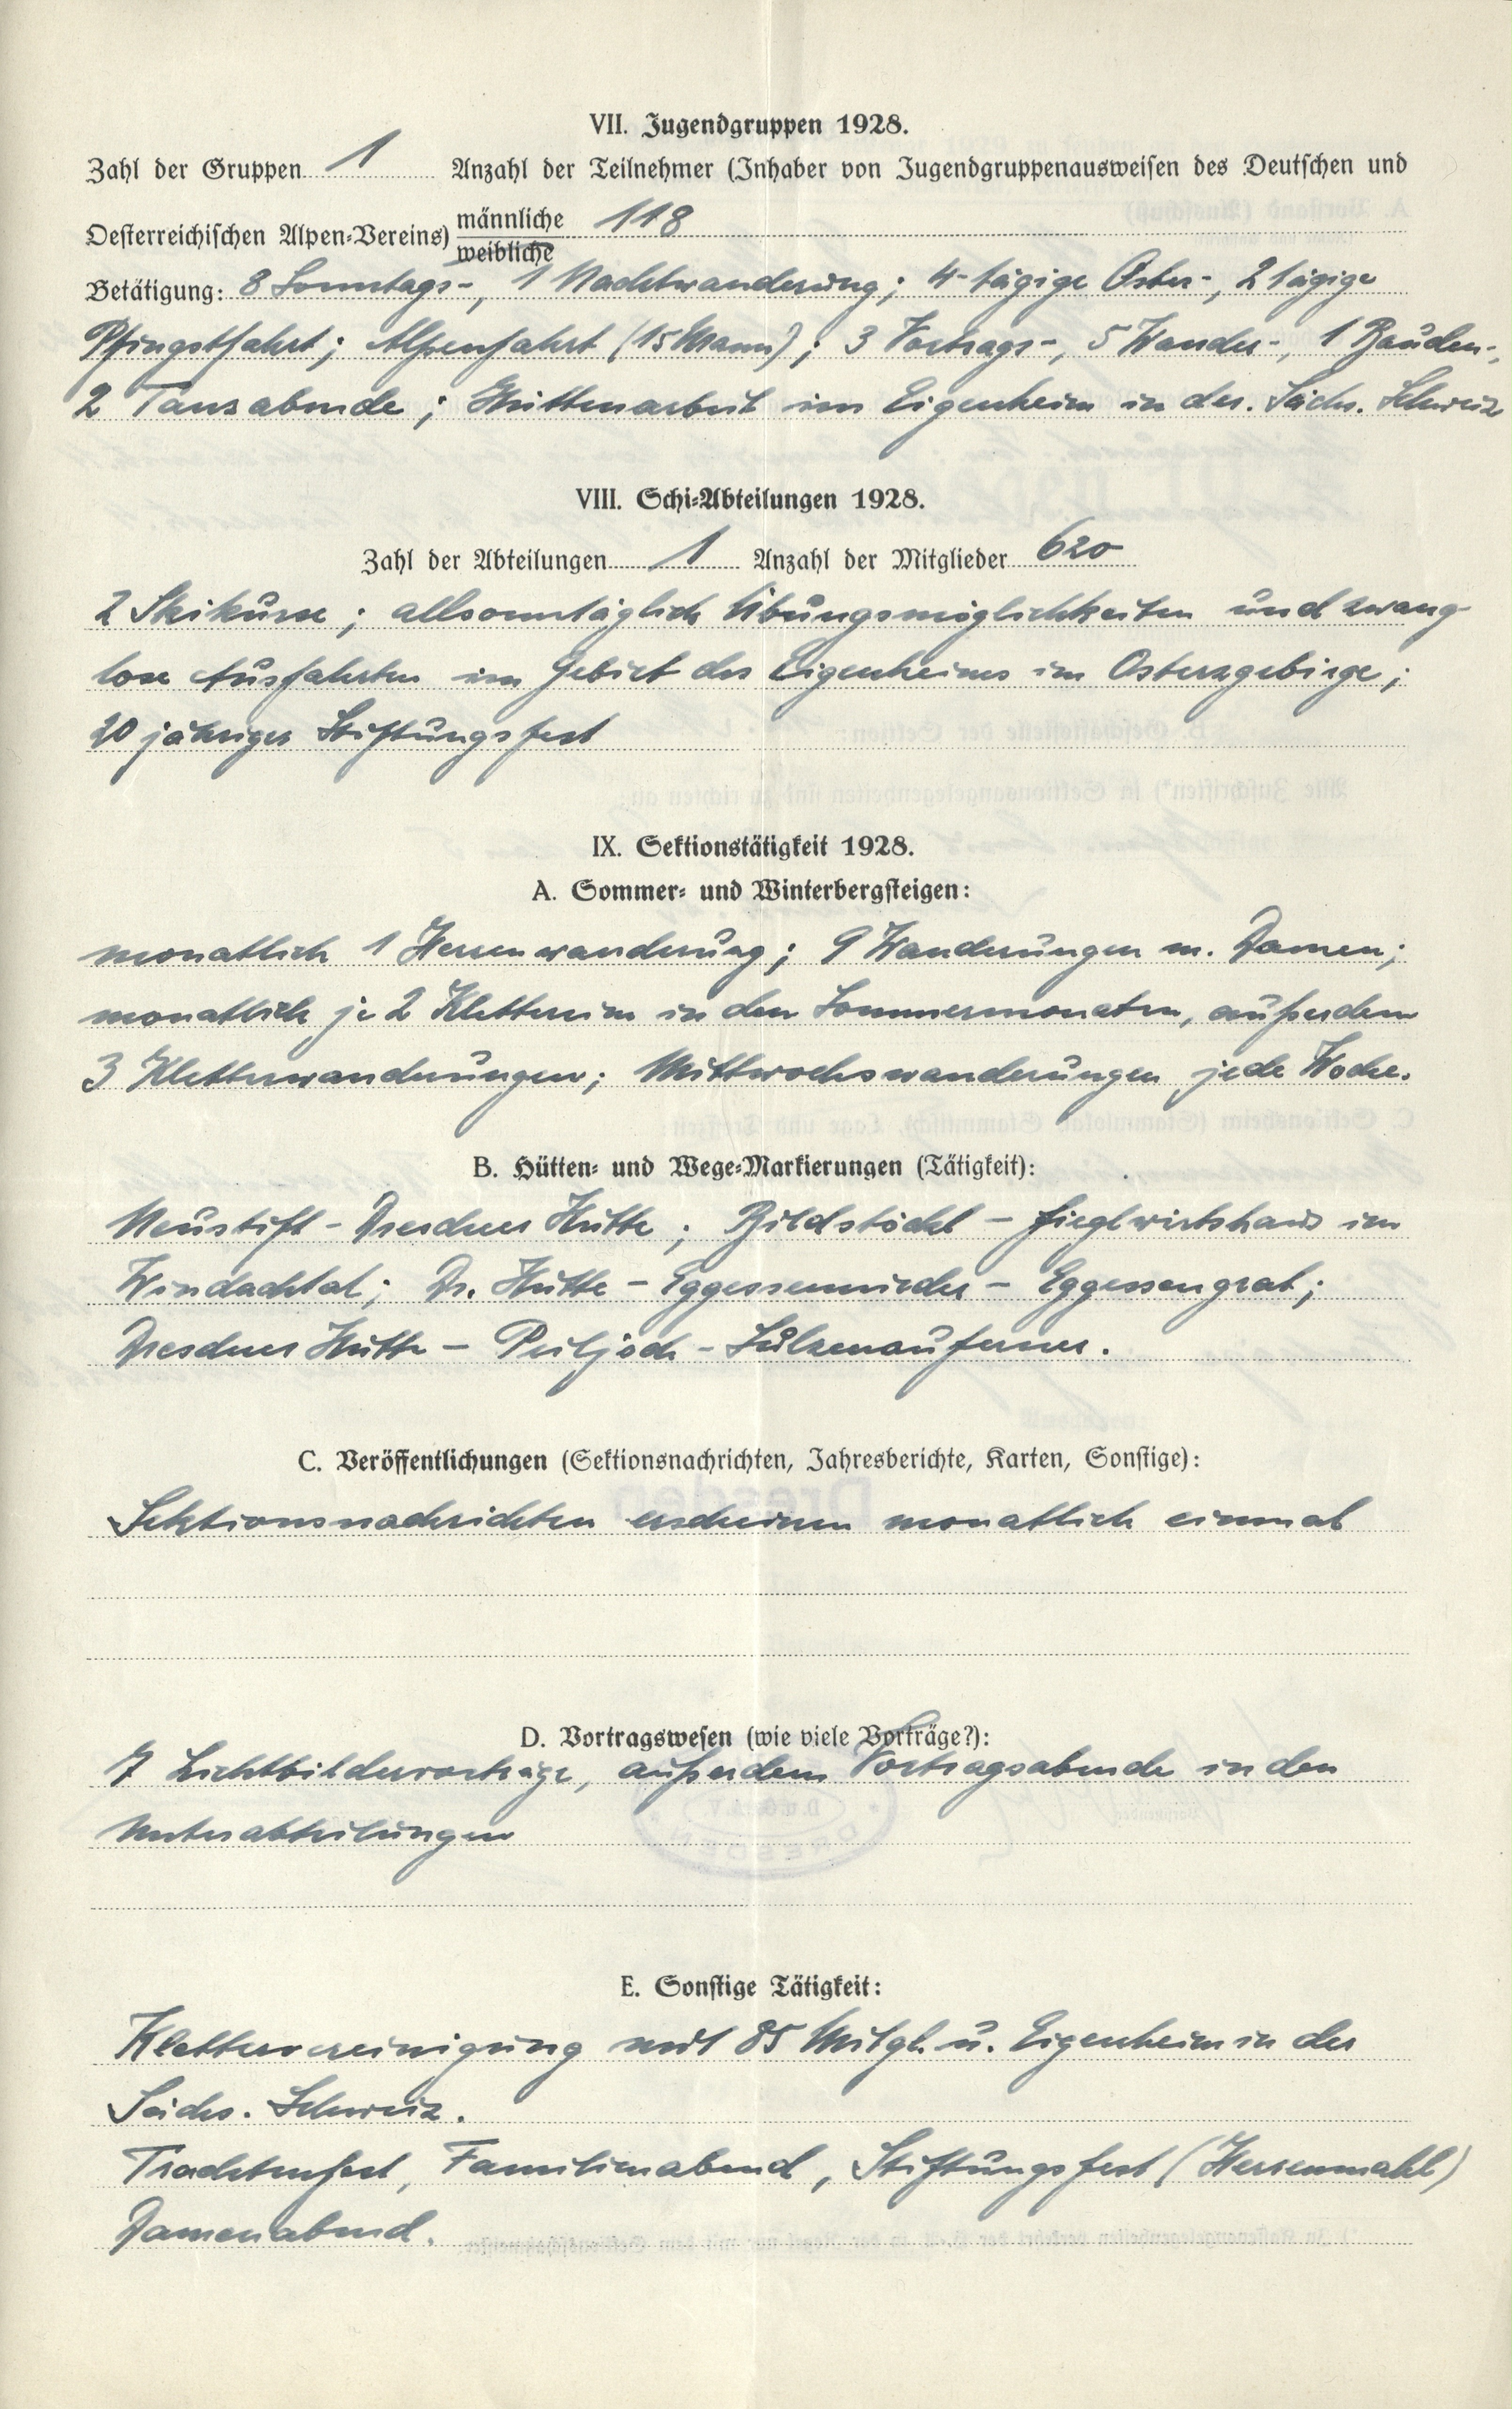 VII. Jugendgruppen 1928.
Zahl der Gruppen 1 Anzahl der Teilnehmer (Inhaber von Jugendgruppenausweisen des Deutschen und
Oesterreichischen Alpen-Vereins) männliche 118
weibliche
Betätigung: 8 Sonntags-, 1 Nachtwanderung; 4-tägige Oster-, 2 tägige
Pfingstfahrt; Alpenfahrt (15 Mann); 3 Vortrags-, 5 Wander-, 1 Bauden-,
2 Tanzabende; Hüttenarbeit im Eigenheim in der. Sächs. Schweiz
VIII. Schi-Abteilungen 1928.
Zahl der Abteilungen 1 Anzahl der Mitglieder 620
2 Skikurse; allsonntäglich Übungsmöglichkeiten und zwang
lose Ausfahrten im Gebiet des Eigenheimes im Osterzgebirge;
20 jähriges Stiftungsfest
IX. Sektionstätigkeit 1928.
A. Sommer- und Winterbergsteigen:
monatlich 1 Herrenwanderung; 9 Wanderungen m. Damen;
monatlich je 2 Klettereien in den Sommermonaten, außerdem
3 Kletterwanderungen; Mittwochswanderungen jede Woche.
B. Hütten- und Wege-Markierungen (Tätigkeit):
Neustift - Dresdner Hütte; Bildstöckl - Fieglwirtshaus im
Windachtal; Dr. Hütte - Eggessennieder - Eggessengrat;
Dresdner Hütte - Peiljoch - Sulzenauferner.
C. Veröffentlichungen (Sektionsnachrichten, Jahresberichte, Karten, Sonstige):
Sektionsnachrichten erscheinen monatlich einmal
D. Vortragswesen (wie viele Vorträge?):
7 Lichtbildervorträge, außerdem Vortragsabende in den
Unterabteilungen
E. Sonstige Tätigkeit:
Klettervereinigung mit 85 Mitgl. u. Eigenheim in der
Sächs. Schweiz.
Trachtenfest, Familienabend, Stiftungsfest (Herrenmahl)
Damenabend.